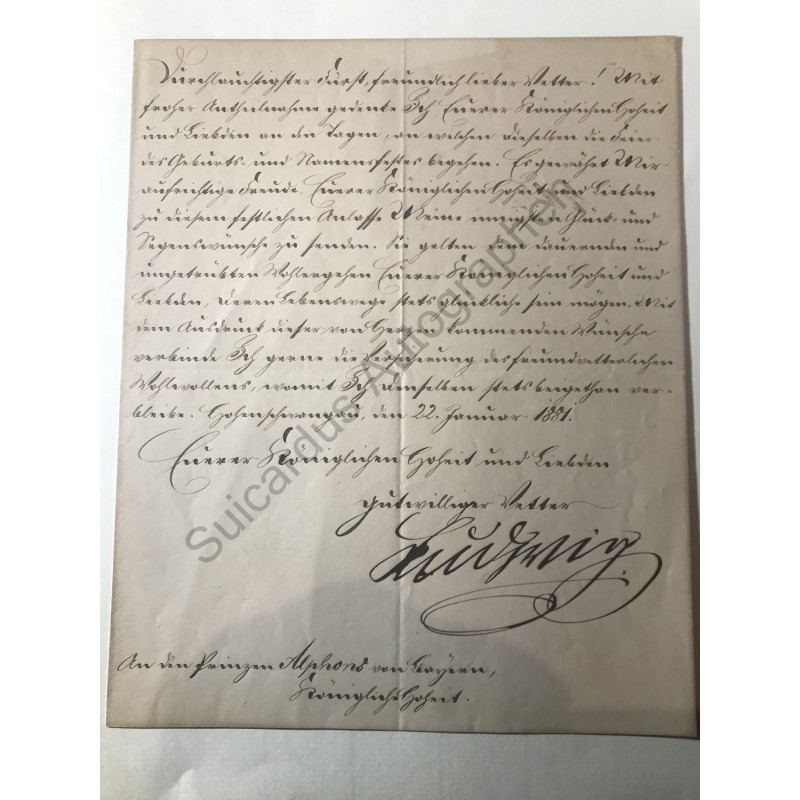 Durchlauchtigster Fürst, freundlich lieber Vetter! Mit
froher Antheilnahme gedenke Ich Euerer Königlichen Hoheit
und Liebden an den Tagen, an welchen dieselben die Feier
des Geburts- und Namensfestes begehen. Es gewährt Mir
aufrichtige Freude, Euerer Königlichen Hoheit und Liebden
zu diesem festlichen Anlasse Meine innigsten Glück- und
Segenswünsche zu senden. Sie gelten dem dauernden und
ungetrübten Wohlergehen Euerer Königlichen Hoheit und
Liebden, deren Lebenswege stets glückliche sein mögen. Mit
dem Ausdruck dieser von Herzen kommenden Wünsche
verbinde Ich gerne die Versicherung des freundvetterlichen
Wohlwollens, womit Ich demselben stets beigethan ver-
bleibe. Hohenschwangau, den 22. Januar 1881.
Euerer Königlichen Hoheit und Liebden
gutwilliger Vetter
Ludwig.
An den Prinzen Alphons von Bayern,
Königliche Hoheit.
Suicardus Autographen